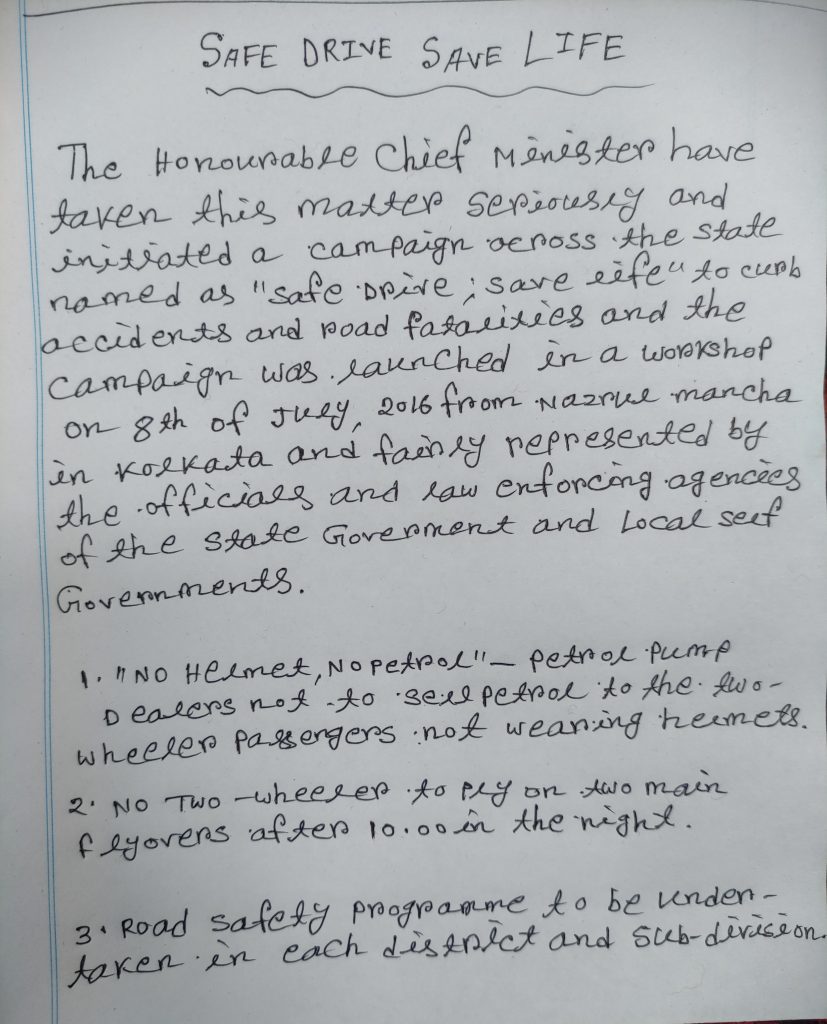 SAFE DRIVE SAVE LIFE
The Honourable Chief Minister have
taken this matter seriously and
initiated a campaign across the state
named as "safe Drive ; save life" to curb
accidents and road fatalities and the
campaign was launched in a workshop
on 8th of July, 2016 from Nazrul mancha
in Kolkata and fairly represented by
the officials and law enforcing agencies
of the State Goverment and Local self
Governments.
1. "NO Helmet, No petrol" - petrol pump
Dealers not to sell petrol to the two-
wheeler passengers not wearing helmets.
2. NO TWO-wheeler to ply on two main
flyovers after 10.00 in the night.
3. Road safety programme to be under-
taken in each district and sub-division.